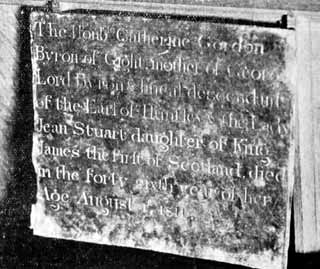 The Honb. Catherine Gordon
Byron of Gight, mother of George
Lord Byron & lineal descendant
of the Earl of Huntley & the Lady
Jean Stuart daughter of King
James the First of Scotland, died
in the forty sixth year of her
Age August